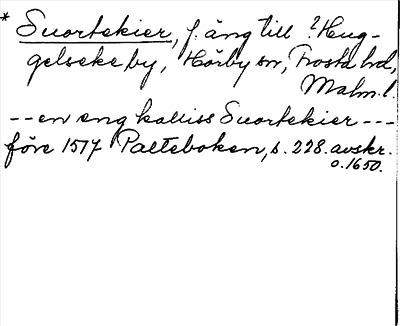 * Suortekier, f. äng till ? Heug-
gelseke by, Hörby sn, Frosta hd,
Malm. l.
-- en eng kalliss Suortekier ---
före 1517 Palteboken, s. 228. avskr.
o. 1650.